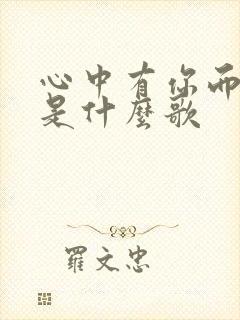 心中有你而
是什麼歌
羅文忠